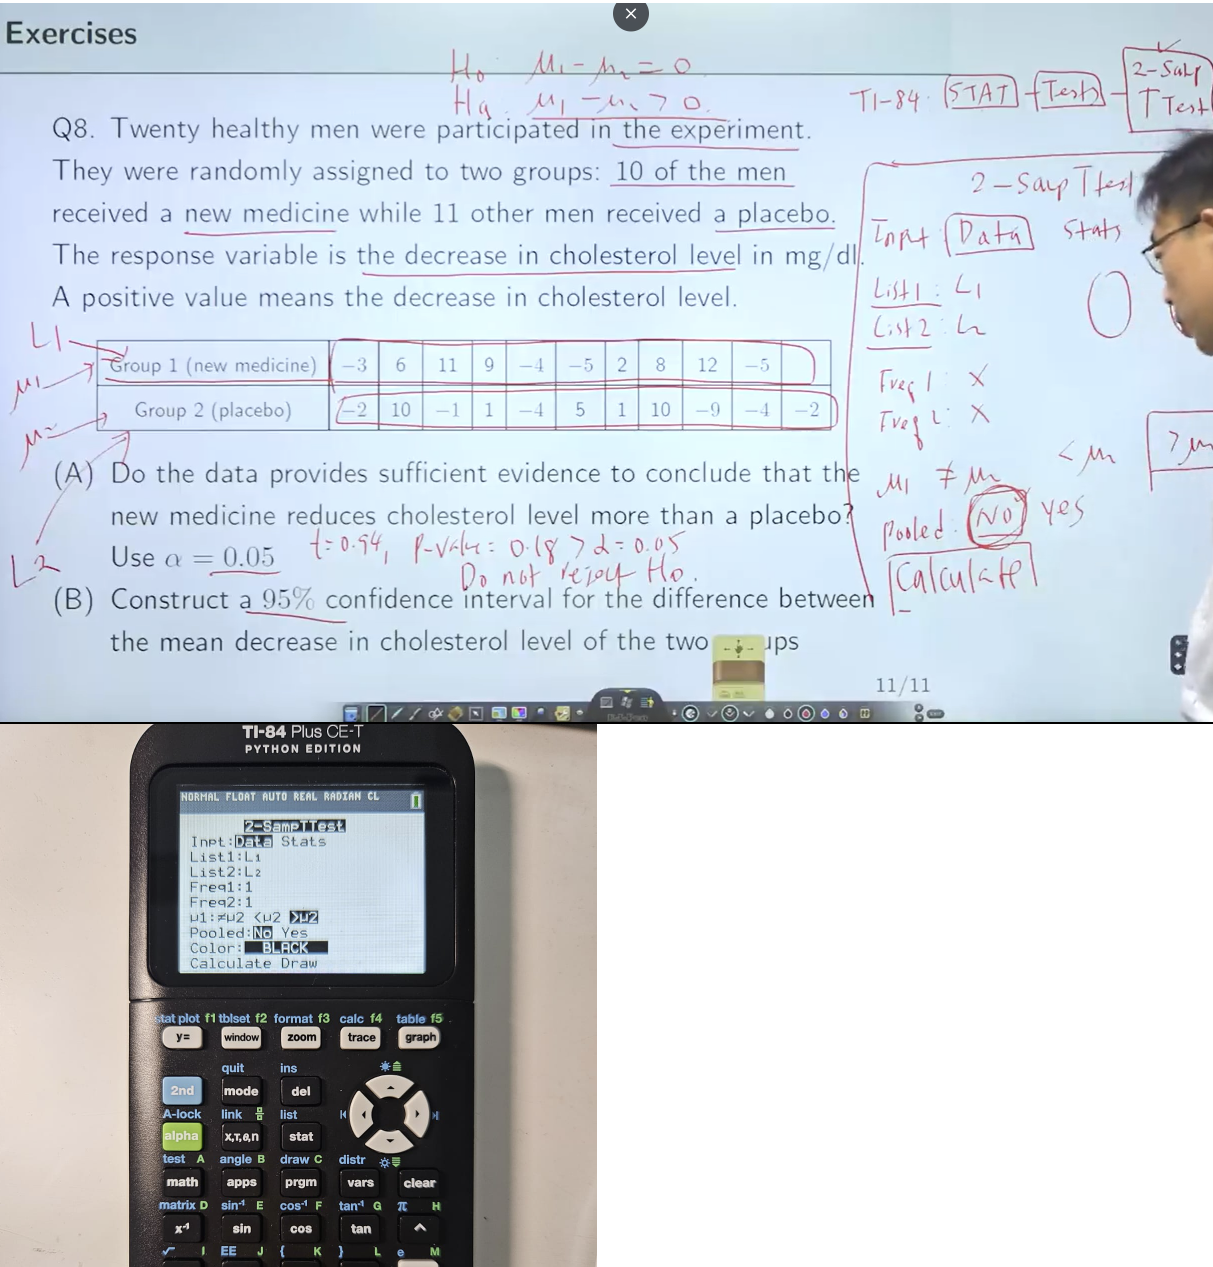 Exercises
H₀: μ₁ - μ₂ = 0
Ha: μ₁ - μ₂ > 0.
TI-84: STAT - Tests - 2-Samp T Test
Q8. Twenty healthy men were participated in the experiment.
They were randomly assigned to two groups: 10 of the men
received a new medicine while 11 other men received a placebo.
The response variable is the decrease in cholesterol level in mg/dl.
A positive value means the decrease in cholesterol level.
L1
μ₁
Group 1 (new medicine) −3 6 11 9 −4 −5 2 8 12 −5
μ₂
Group 2 (placebo) −2 10 −1 1 −4 5 1 10 −9 −4 −2
(A) Do the data provides sufficient evidence to conclude that the
new medicine reduces cholesterol level more than a placebo?
Use α = 0.05
t=0.94, P-value = 0.18 > α = 0.05
Do not reject H₀.
L2
(B) Construct a 95% confidence interval for the difference between
the mean decrease in cholesterol level of the two ups
2-SampTTest
Input: Data Stats
List1: L1
List2: L2
Freq1: X
Freq2: X
μ₁ ≠ μ₂ < μ₂ > μ₂
Pooled: No yes
Calculate
11/11
TI-84 Plus CE-T
PYTHON EDITION
NORMAL FLOAT AUTO REAL RADIAN CL
2-SampTTest
Inpt:Data Stats
List1:L1
List2:L2
Freq1:1
Freq2:1
μ1:≠μ2 <μ2 >μ2
Pooled:No Yes
Color: BLACK
Calculate Draw
stat plot f1 tblset f2 format f3 calc f4 table f5
y= window zoom trace graph
quit ins
2nd mode del
A-lock link list
alpha X,T,θ,n stat
test A angle B draw C distr
math apps prgm vars clear
matrix D sin⁻¹ E cos⁻¹ F tan⁻¹ G π H
x⁻¹ sin cos tan ^
√ I EE J { K } L e M